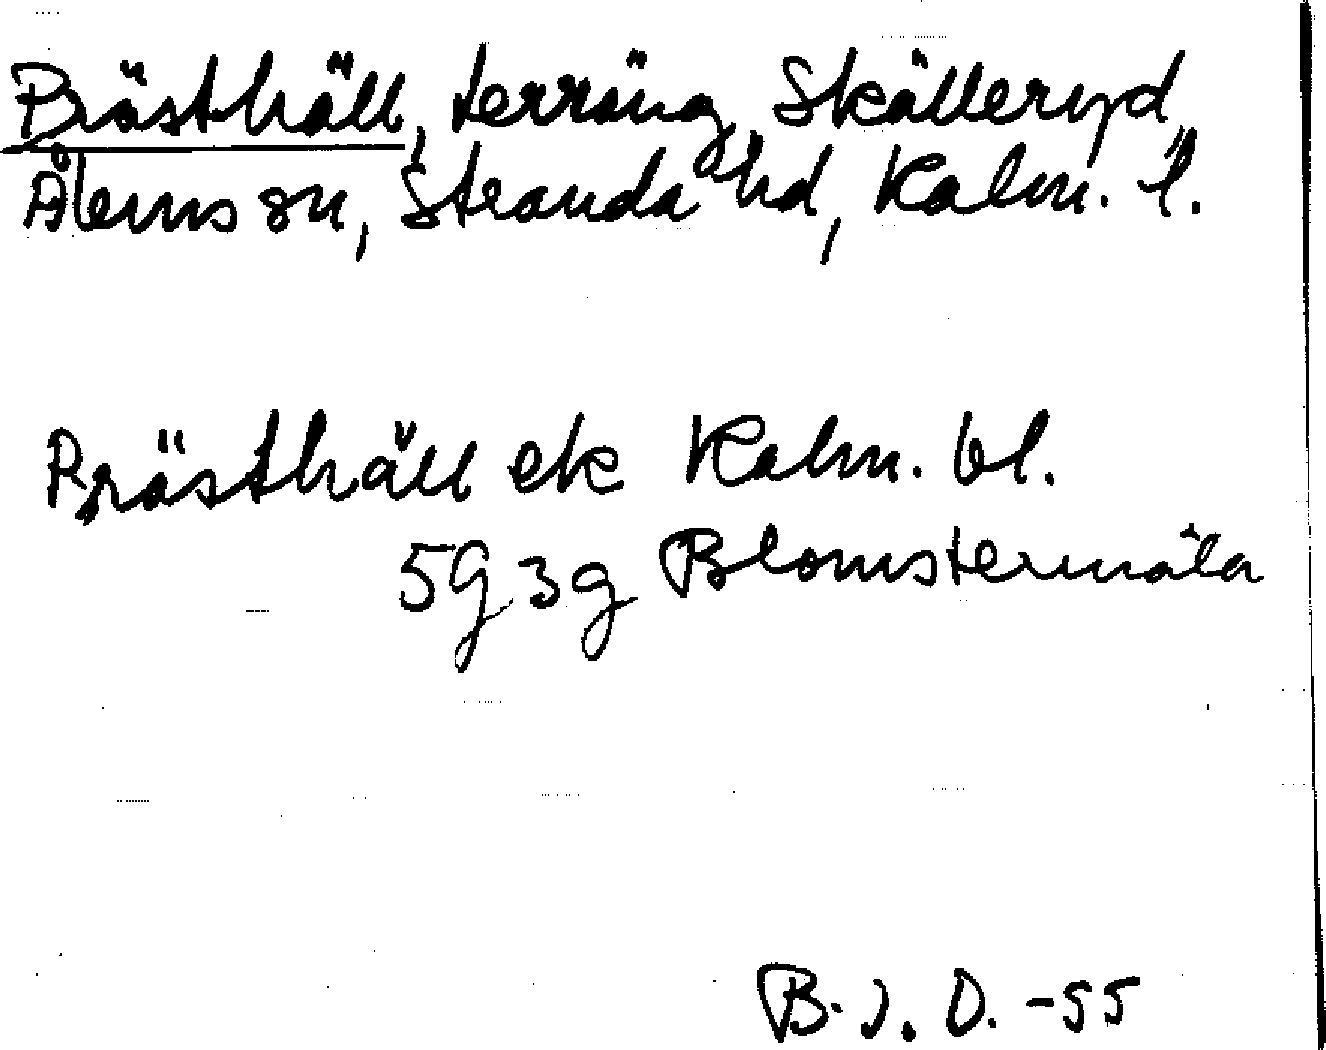 Prästhäll, terräng, Skälleryd,
Ålems sn, Stranda hd, Kalm. l.
Prästhäll ek Kalm. bl.
5G 3g Blomstermåla
B. J. D. -55